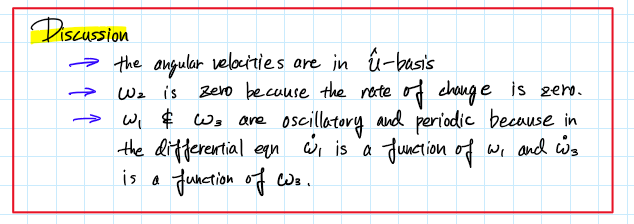 Discussion
→ the angular velocities are in û-basis
→ ω₂ is zero because the rate of change is zero.
→ ω₁ & ω₃ are oscillatory and periodic because in
the differential eqn ω̇₁ is a function of ω₁ and ω̇₃
is a function of ω₃.